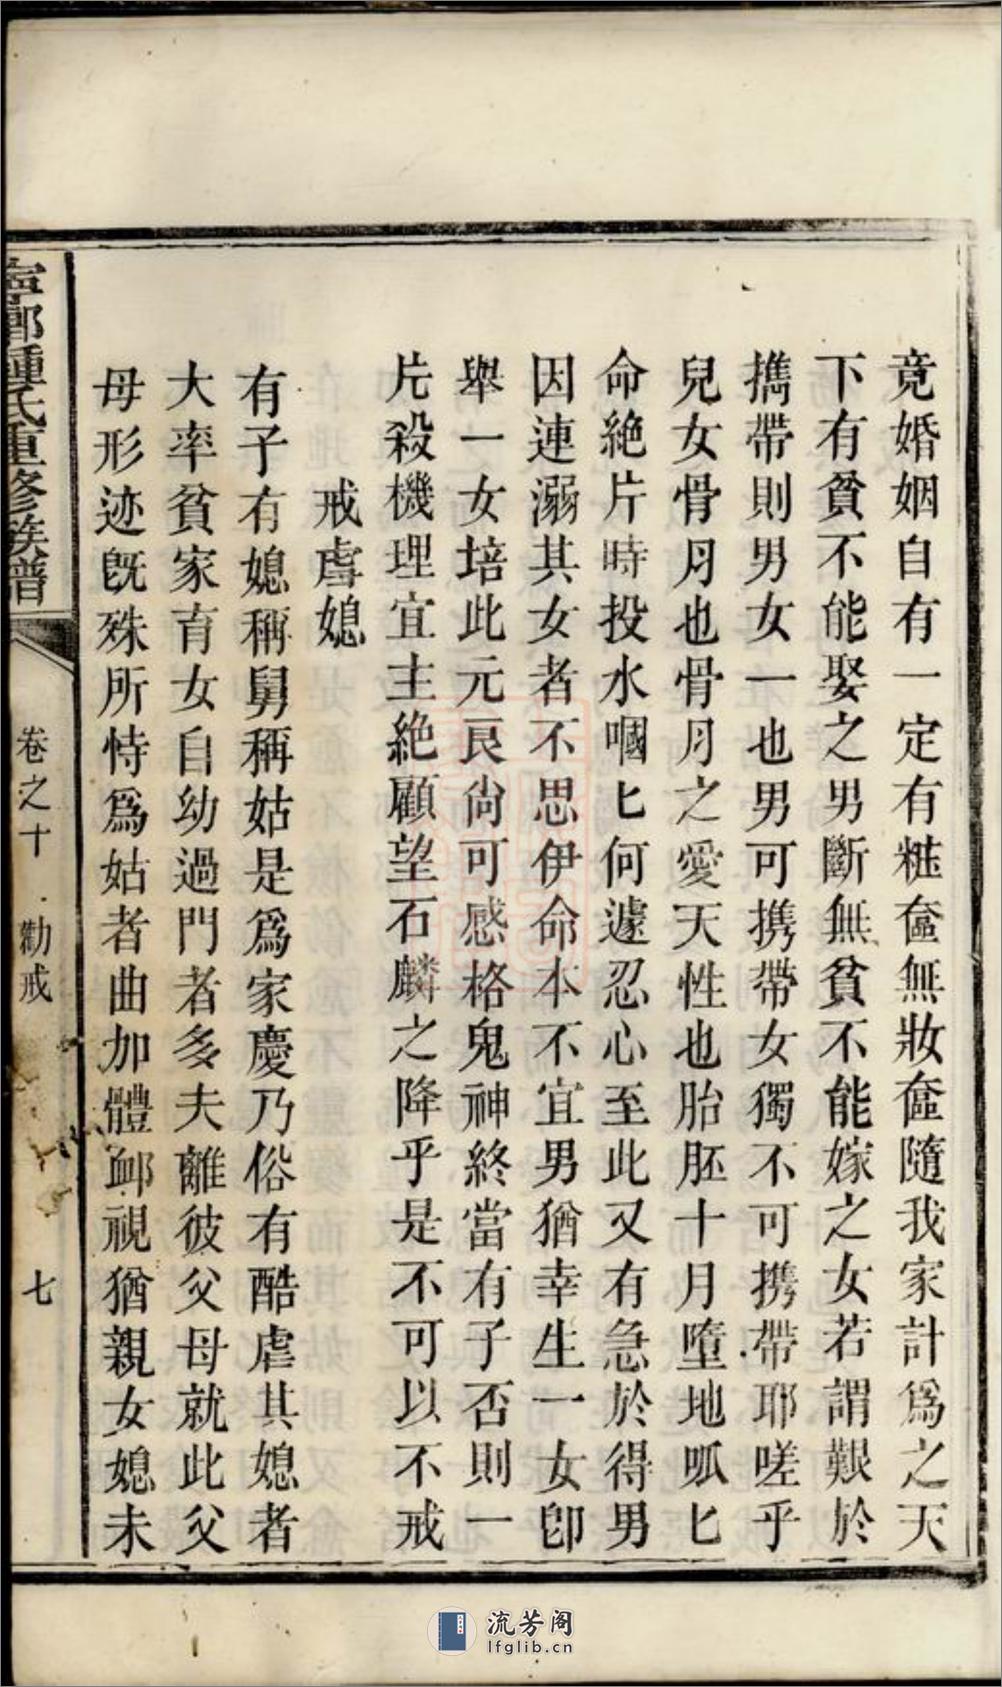 竟婚姻自有一定有粧奩無妝奩隨我家計爲之天
下有貧不能娶之男斷無貧不能嫁之女若謂艱於
攜帶則男女一也男可携帶女獨不可携帶耶嗟乎
兒女骨月也骨月之愛天性也胎胚十月墮地呱匕
命絶片時投水嘓匕何遽忍心至此又有急於得男
因連溺其女者不思伊命本不宜男猶幸生一女卽
舉一女培此元良尙可感格鬼神終當有子否則一
片殺機理宜主絶顧望石麟之降乎是不可以不戒
戒虐媳
有子有媳稱舅稱姑是爲家慶乃俗有酷虐其媳者
大率貧家育女自幼過門者多夫離彼父母就此父
母形迹旣殊所恃爲姑者曲加體卹視猶親女媳未
寧鄉鍾氏重修族譜
卷之十 勸戒
七
流芳阁
lfglib.cn